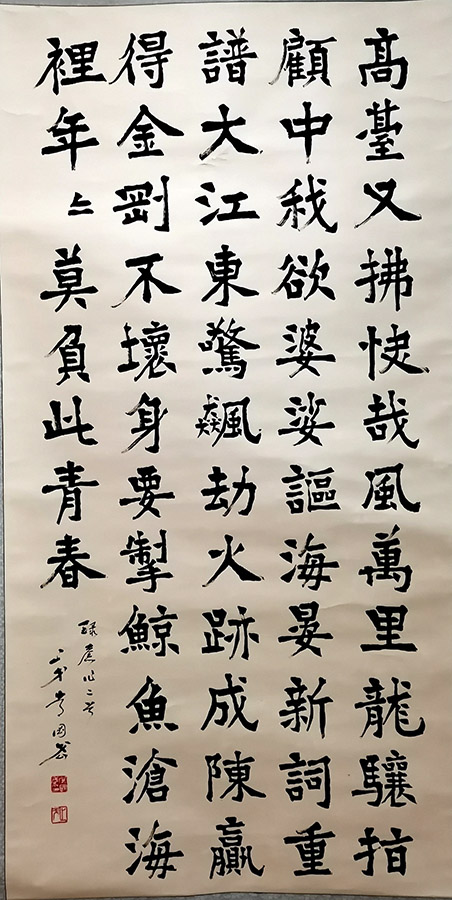 高臺又拂快哉風萬里龍驤指
顧中我欲婆娑謳海晏新詞重
譜大江東驚飆劫火跡成陳贏
得金剛不壞身要掣鯨魚滄海
裡年〻莫負此青春